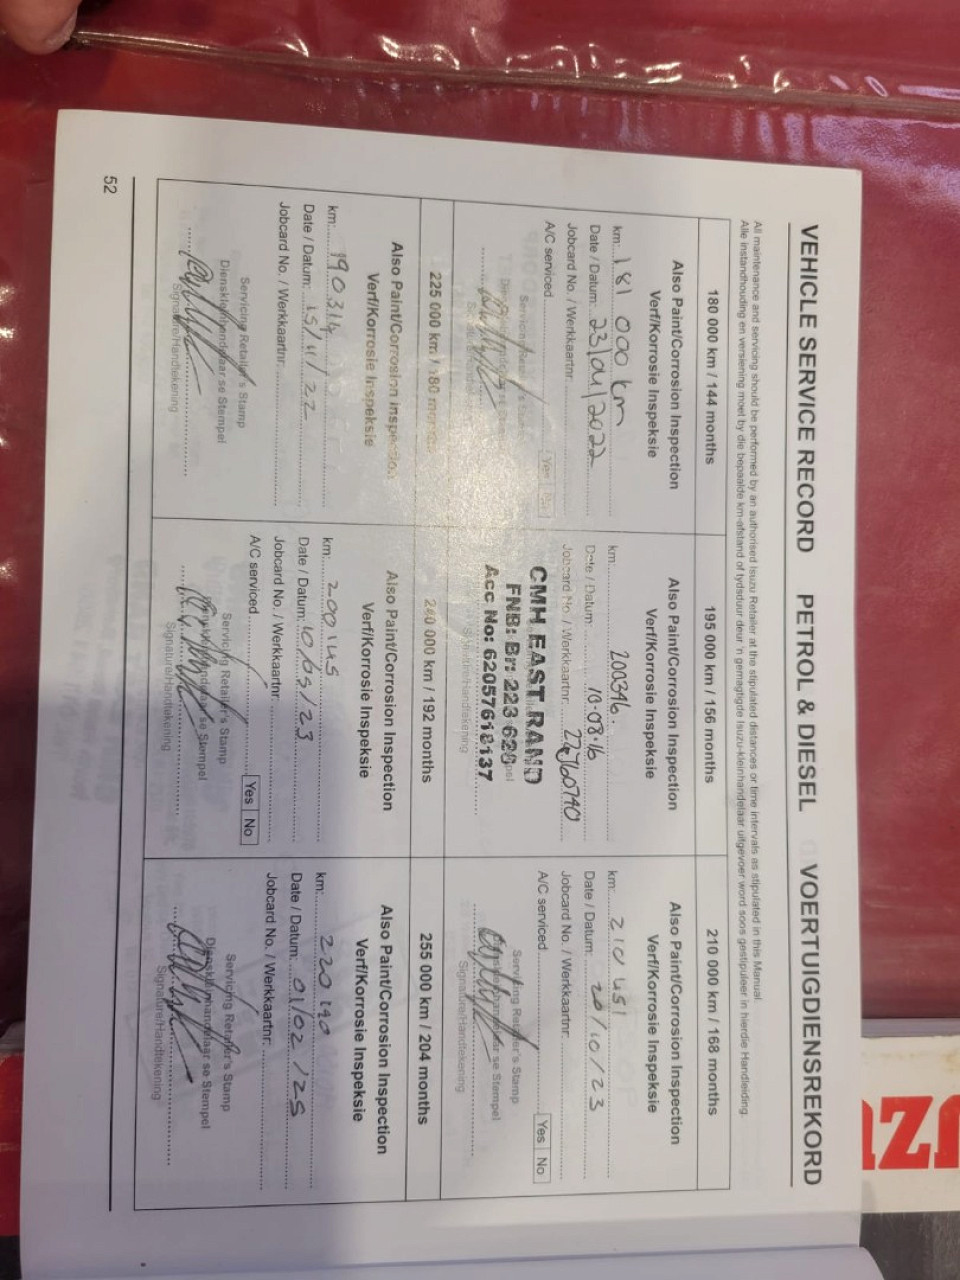 VEHICLE SERVICE RECORD PETROL & DIESEL VOERTUIGDIENSREKORD
All maintenance and servicing should be performed by an authorised Isuzu Retailer at the stipulated distances or time intervals as stipulated in this Manual.
Alle instandhouding en versiening moet by die bepaalde km-afstand of tydsduur deur 'n gemagtigde Isuzu-kleinhandelaar uitgevoer word soos gestipuleer in hierdie Handleiding.
180 000 km / 144 months
Also Paint/Corrosion Inspection
Verf/Korrosie Inspeksie
km: 181 000 km
Date / Datum: 23/04/2022
Jobcard No. / Werkkaartnr:
A/C serviced Yes No
195 000 km / 156 months
Also Paint/Corrosion Inspection
Verf/Korrosie Inspeksie
km: 200346.
Date / Datum: 10.08.16
Jobcard No. / Werkkaartnr:
CMH EAST RAND
FNB: Br: 223 626
Acc No: 62057618137
Signature/Handtekening
210 000 km / 168 months
Also Paint/Corrosion Inspection
Verf/Korrosie Inspeksie
km: 210 451
Date / Datum: 20/10/23
Jobcard No. / Werkkaartnr:
A/C serviced Yes No
Servicing Retailer's Stamp
Dienskleinhandelaar se Stempel
Signature/Handtekening
225 000 km / 180 months
Also Paint/Corrosion Inspection
Verf/Korrosie Inspeksie
km: 190314
Date / Datum: 15/11/22
Jobcard No. / Werkkaartnr:
Servicing Retailer's Stamp
Dienskleinhandelaar se Stempel
Signature/Handtekening
240 000 km / 192 months
Also Paint/Corrosion Inspection
Verf/Korrosie Inspeksie
km: 200145
Date / Datum: 10/05/23
Jobcard No. / Werkkaartnr:
A/C serviced Yes No
Servicing Retailer's Stamp
Dienskleinhandelaar se Stempel
Signature/Handtekening
255 000 km / 204 months
Also Paint/Corrosion Inspection
Verf/Korrosie Inspeksie
km: 220 190
Date / Datum: 01/02/25
Jobcard No. / Werkkaartnr:
Servicing Retailer's Stamp
Dienskleinhandelaar se Stempel
Signature/Handtekening
52